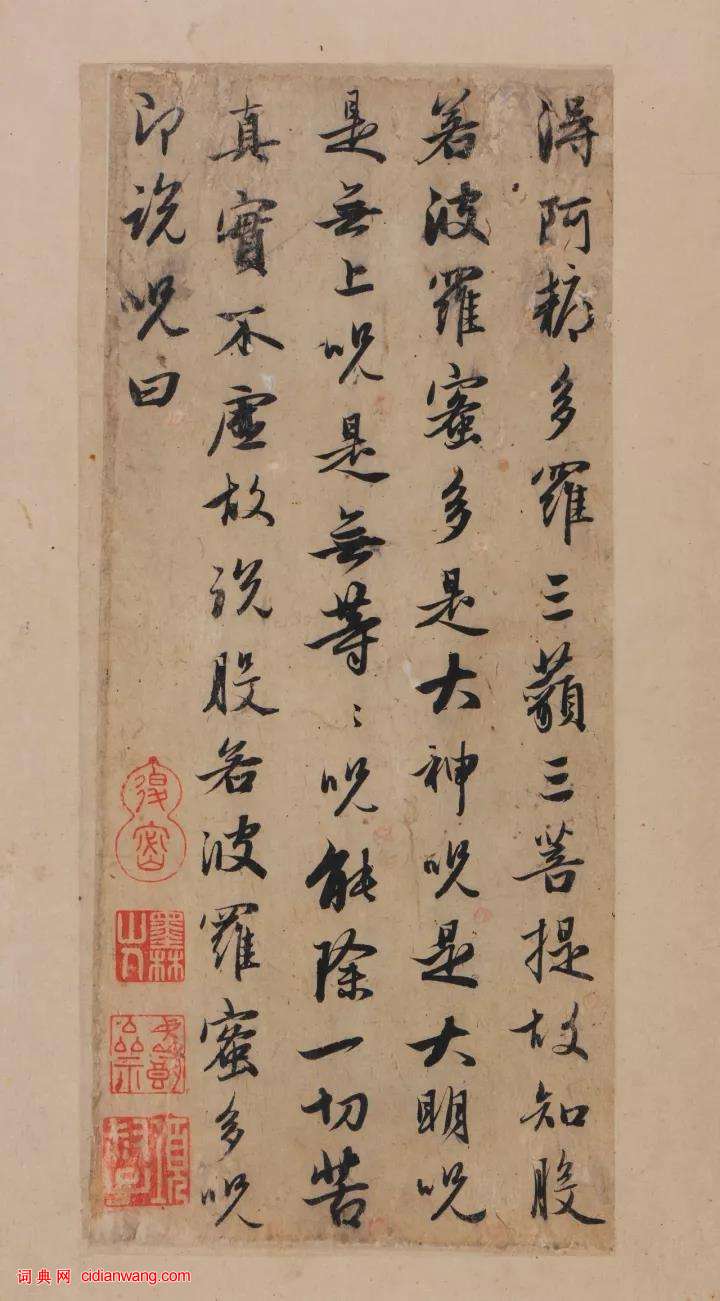 得阿耨多羅三藐三菩提故知般
若波羅蜜多是大神呪是大明呪
是無上呪是無等〻呪能除一切苦
真實不虛故說般若波羅蜜多呪
即說呪曰
退密
墨林山人
词典网 cidianwang.com